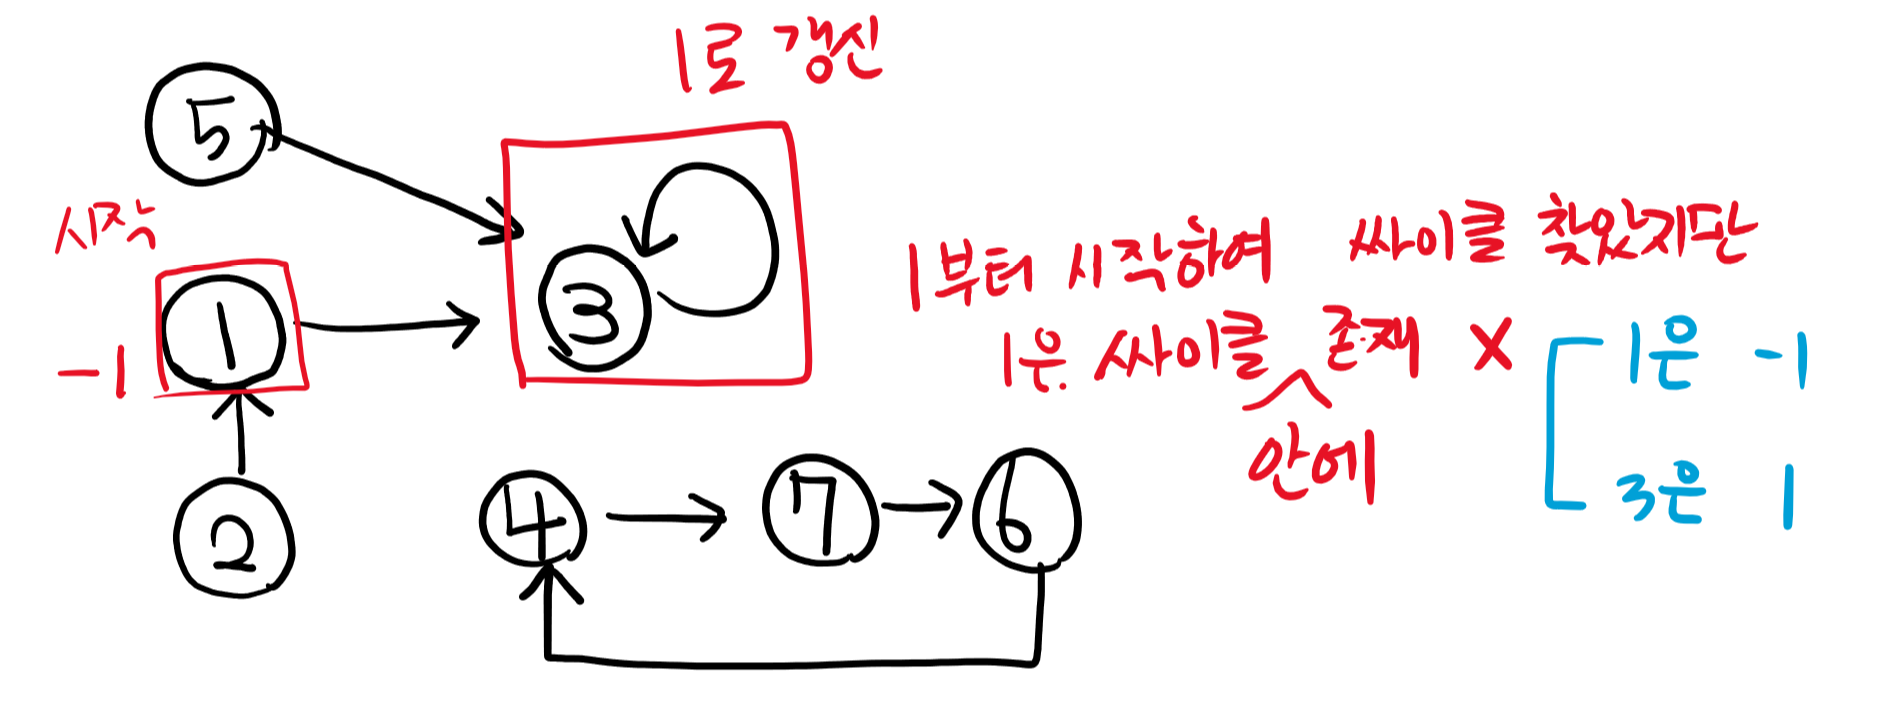 1로 갱신
5
시작
1
-1
3
1부터 시작하여 싸이클 찾았지만
1은 싸이클 존재 X
안에
1은 -1
3은 1
2
4
7
6